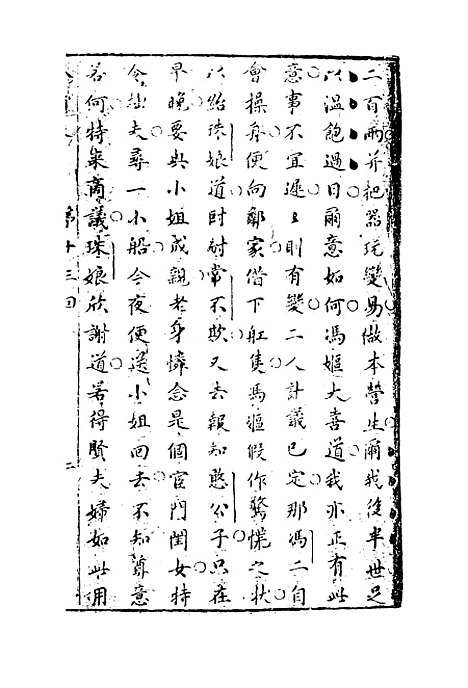 二百兩并把器玩變易做本營生爾我後半世足
以溫飽過日爾意如何馮嫗大喜道我亦正有此
意事不宜遲遲則有變二人計議已定那馮二自
會操舟便向鄰家借下舡隻馮嫗假作驚慌之狀
以紿珠娘道財尉常不欺又去報知憨公子只在
早晚要與小姐成親老身憐念是個官門閨女特
令拙夫尋一小船今夜便送小姐回去不知尊意
若何特來商議珠娘欣謝道若得賢夫婦如此用
第十三回 二